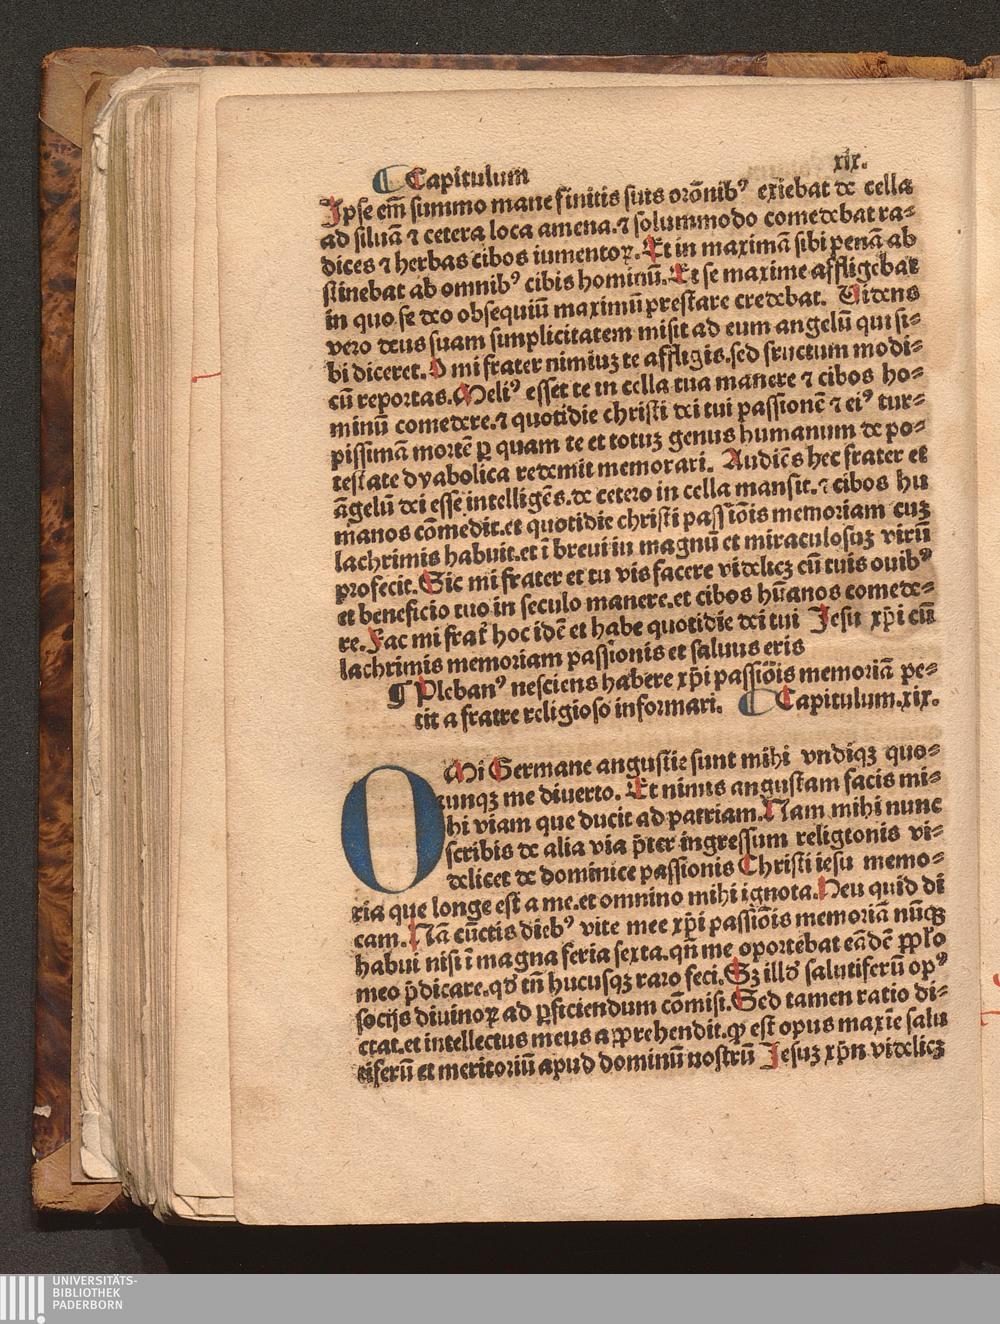 Capitulum xix.
Ipse em̄ summo mane finitis suis orōnibꝰ exiebat de cella
ad siluā ⁊ cetera loca amena.⁊ solummodo comedebat ra⸗
dices ⁊ herbas cibos iumentoꝝ. Et in maximā sibi penā ab
stinebat ab omnibꝰ cibis hominū. Et se maxime affligebat
in quo se deo obsequiū maximū prestare credebat. Uidens
vero deus suam simplicitatem misit ad eum angelū qui si⸗
bi diceret. O mi frater nimiuꝫ te affligis.sed fructum modi⸗
cū reportas. Meliꝰ esset te in cella tua manere ⁊ cibos ho⸗
minū comedere.⁊ quotidie christi dei tui passionē ⁊ eiꝰ tur⸗
pissimā mortē ꝑ quam te et totuꝫ genus humanum de po⸗
testate dyabolica redemit memorari. Audiēs hec frater et
āgelū dei esse intelligēs.de cetero in cella mansit.⁊ cibos hu
manos cōmedit.et quotidie christi passiōis memoriam cuꝫ
lachrimis habuit.et ī breui in magnū et miraculosuꝫ virū
profecit. Sic mi frater et tu vis facere videlicꝫ cū tuis ouibꝰ
et beneficio tuo in seculo manere.et cibos hūanos comede⸗
re. Fac mi frat̄ hoc idē et habe quotidie dei tui Jesu xp̄i cū
lachrimis memoriam passionis et saluus eris
¶ Plebanꝰ nesciens habere xp̄i passiōis memoriā pe⸗
tit a fratre religioso informari. Capitulum.xix.
O Mi Germane angustie sunt mihi vndiqꝫ quo⸗
cunqꝫ me diuerto. Et nimis angustam facis mi⸗
hi viam que ducit ad patriam. Nam mihi nunc
scribis de alia via p̄ter ingressum religionis vi⸗
delicet de dominice passionis Christi iesu memo⸗
ria que longe est a me.et omnino mihi ignota. Heu quid di
cam. Nā cūctis diebꝰ vite mee xp̄i passiōis memoriā nūqꝫ
habui nisi ī magna feria sexta.qn̄ me oportebat eādē ꝓplo
meo p̄dicare.qd̄ tn̄ hucusqꝫ raro feci. Sꝫ illd̄ salutiferū opꝰ
socijs diuinoꝝ ad ꝑficiendum cōmisi. Sed tamen ratio di⸗
ctat.et intellectus meus apprehendit.ꝙ est opus maxīe salu
tiferū et meritoriū apud dominū nostrū Jesuꝫ xp̄n videlicꝫ
UNIVERSITÄTS-
BIBLIOTHEK
PADERBORN